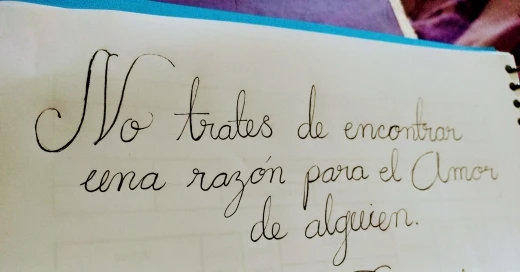 No trates de encontrar
una razón para el Amor
de alguien.